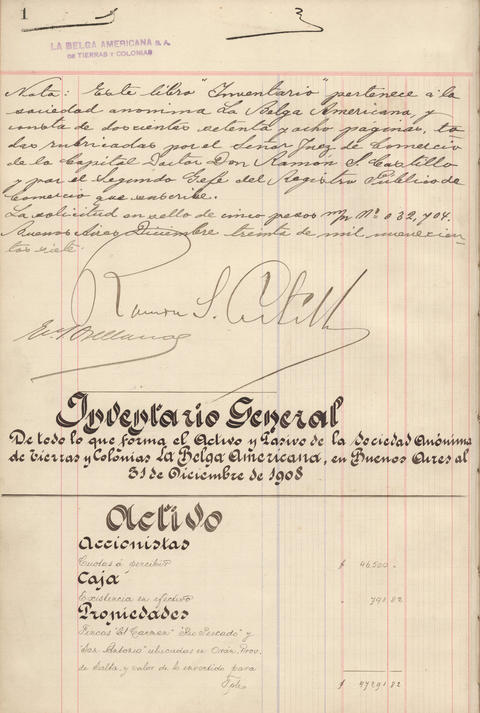 1
LA BELGA AMERICANA S. A.
DE TIERRAS Y COLONIAS
Nota: Este libro "Inventario" pertenece á la
sociedad anonima La Belga Americana, y
consta de doscientas setenta y ocho paginas, to
das rubricadas por el Señor Juez de Comercio
de la Capital Doctor Don Ramón S. Castillo
y por el Segundo Jefe del Registro Público de
Comercio que suscribe.
La solicitud en sello de cinco pesos m/n Nº 032,704.
Buenos Aires Diciembre treinta de mil novecien-
tos siete.
Ramon S. Castillo
Inventario General
De todo lo que forma el Activo y Pasivo de la Sociedad Anónima
de Tierras y Colonias La Belga Americana, en Buenos Aires al
31 de Diciembre de 1908
Activo
Accionistas
Cuotas á percibir $ 46.500 .
Caja
Existencia en efectivo 791 82
Propiedades
Fincas "El Carmen" "Rio Pescado" y
"San Antonio" ubicadas en Orán, Prov.
de Salta, y valor de lo invertido para
$ 47291 82